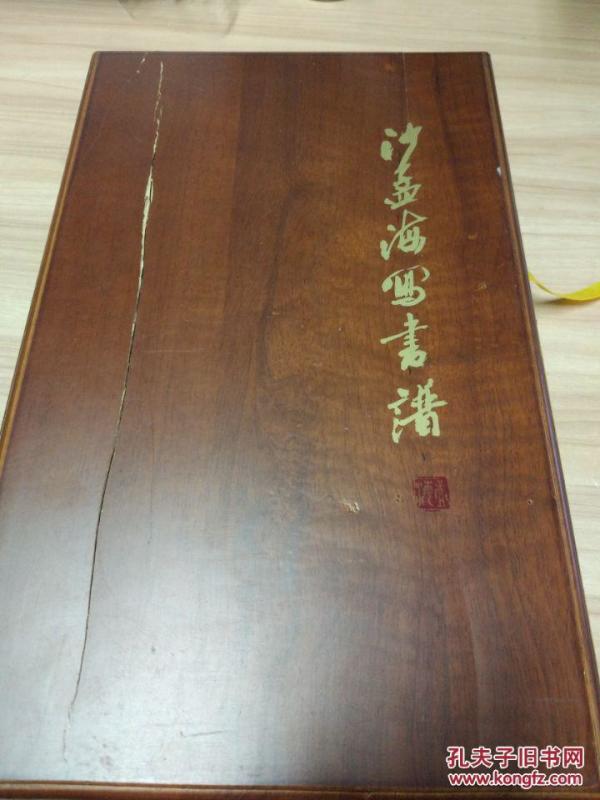 沙孟海寫书譜
孔夫子旧书网
www.kongfz.com